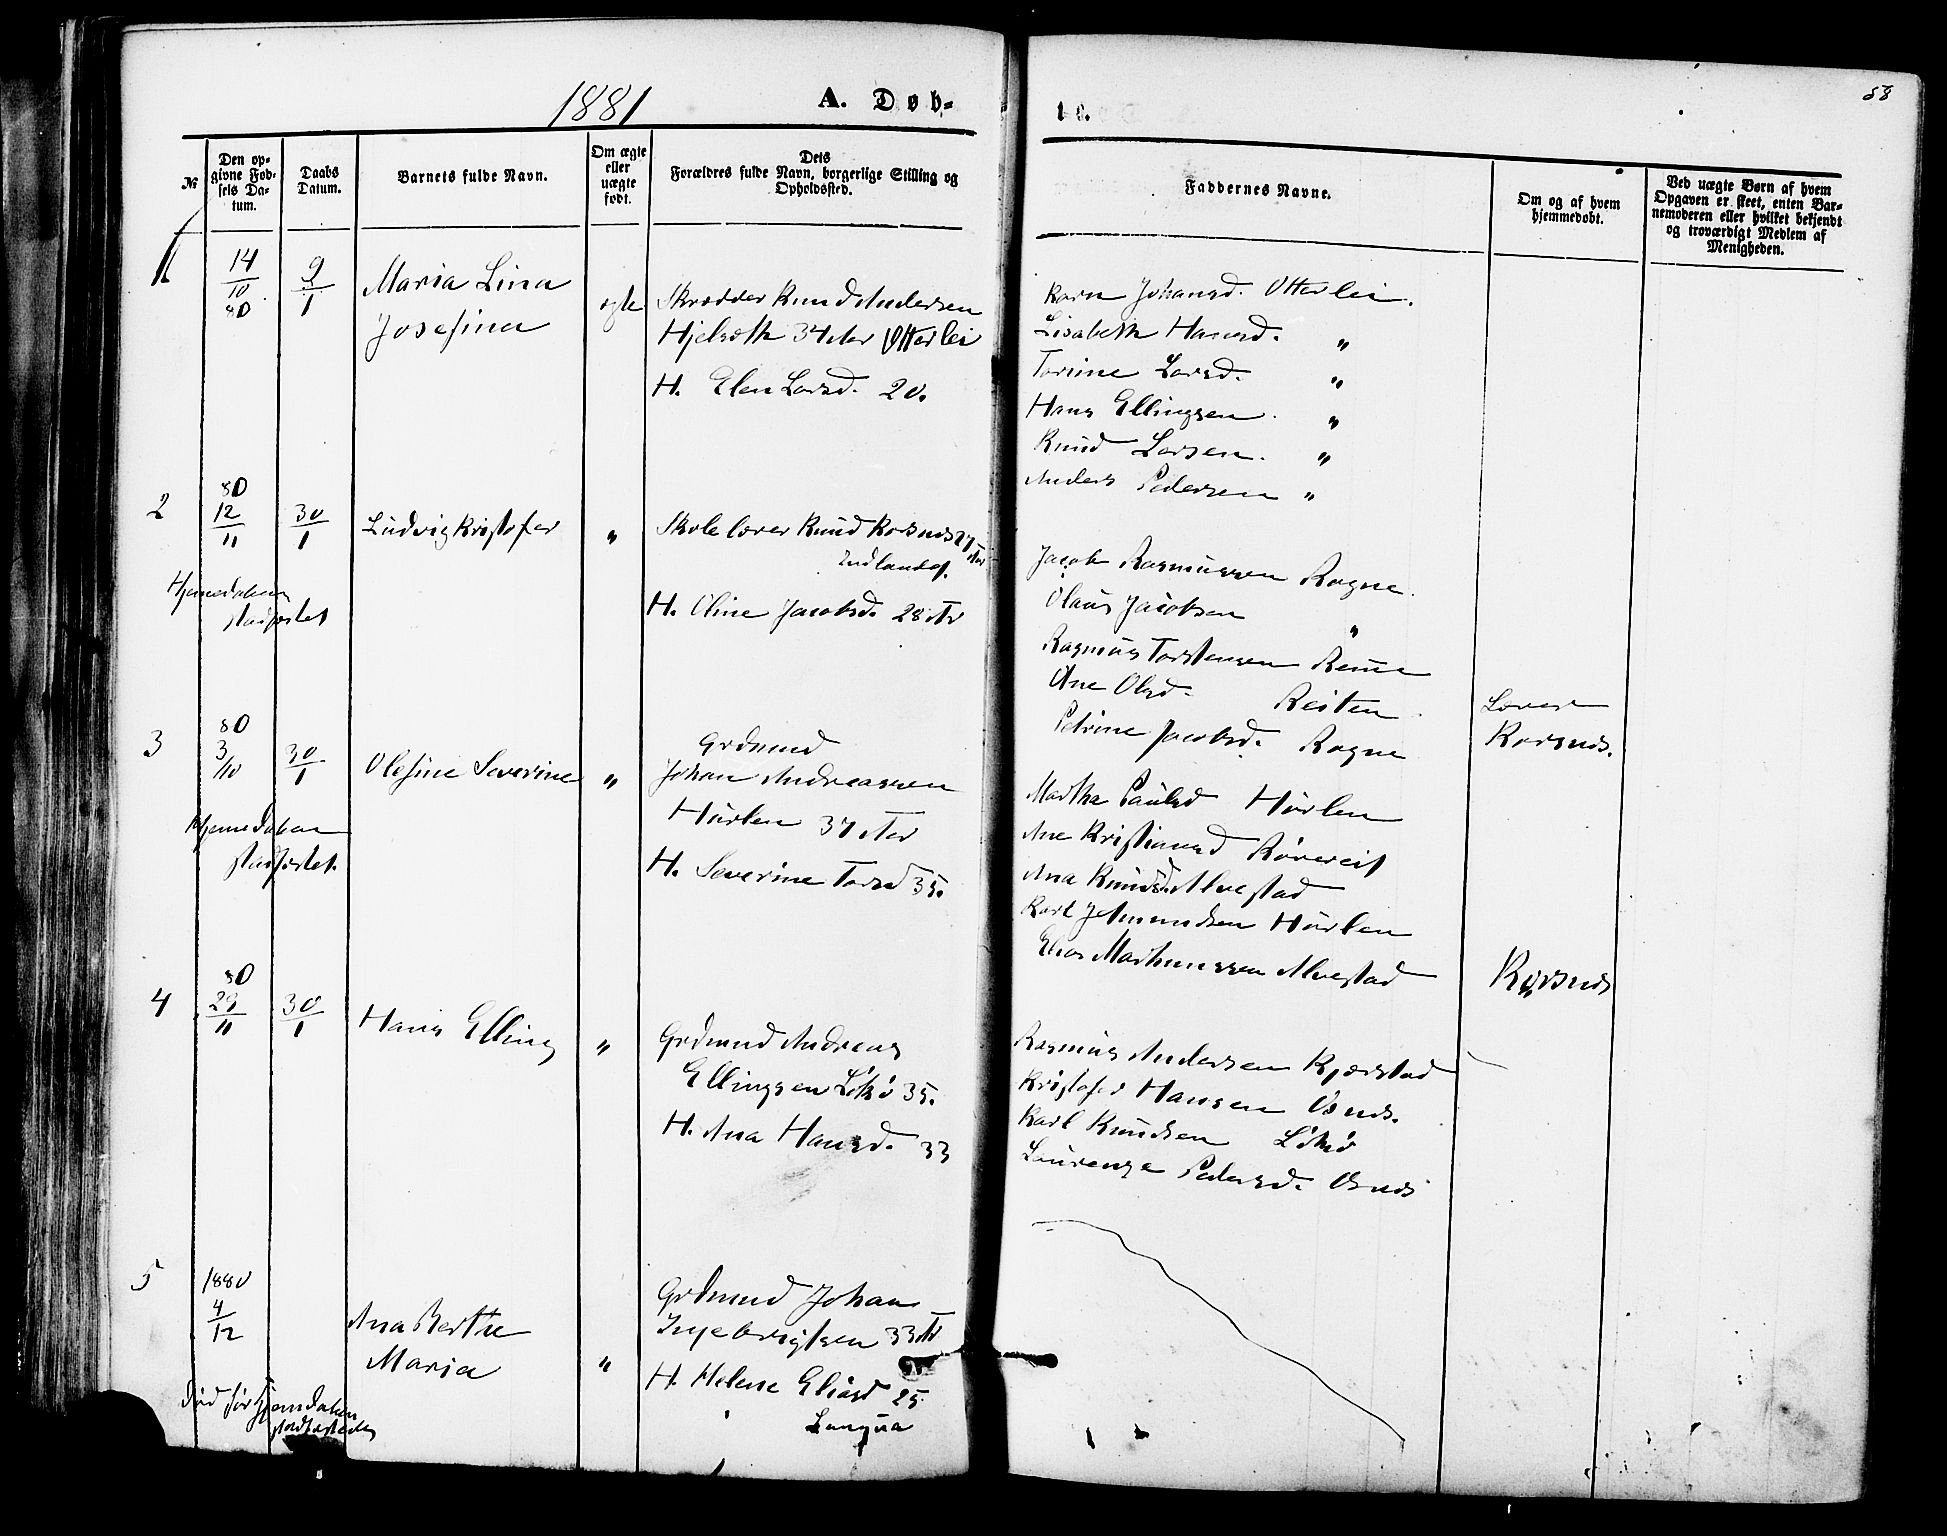 1881
A. Døb-
te.
58
№
Den op-
givne Fød-
sels Da-
tum.
Daabs
Datum.
Barnets fulde Navn.
Om ægte
eller
uægte
født.
Dets
Forældres fulde Navn, borgerlige Stilling og
Opholdssted.
Faddernes Navne.
Om og af hvem
hjemmedøbt.
Ved uægte Børn af hvem
Opgaven er skeet, enten Bar-
nemoderen eller hvilket bekjendt
og troværdigt Medlem af
Menigheden.
1
14
10
80
9
1
Maria Lina
Josefina
ægte
Skrædder Knud Andersen
Hjelseth 34 Aar Otterlei
H. Elen Larsd. 20.
Karn Johansd. Otterlei.
Lisabeth Hansd. "
Torine Larsd. "
Hans Ellingsen. "
Knud Larsen. "
Anders Pedersen "
2
80
12
11
30
1
Ludvig Kristofer
"
Skolelærer Knud Korsnes 27 Aar
H. Oline Jacobsd. 28 Aar
Hjemedaaben
stadfæstet
Jacob Rasmussen Rogne.
Olaus Jacobsen "
Rasmus Torstensen
Ane Olsd. Reiten
Petrine Jacobsd. Rogne
Lærer
Korsnes.
3
80
3/10
30
1
Olefine Severine
"
Grdmand
Johan Andreassen
Hurlen 37 Aar
H. Severine Torsd 35.
Hjemedaaben
stadfæstet.
Martha Paulsd Hurlen
Ane Kristiansd
Ana Knudsd. Alvestad
Karl J Amundsen Hurlen
Elias Mathiussen Alvestad
Korsnes
4
80
29
11
30
1
Hans Elling
"
Grdmand Andreas
Ellingsen Løkø 35.
H. Ana Hansd. 33
Rasmus Andersen Kjærstad
Kristofer Hansen Osnes.
Karl Knudsen Løkø
Laurense Pedersd. Osnes
5
1880
4
12
Ana Berthe
Maria
"
Grdmand Johan
Ingebrigtsen 33 Aar
H. Helene Eliasd 25
Langva
Død før Hjemdaaben
stadfæstedes